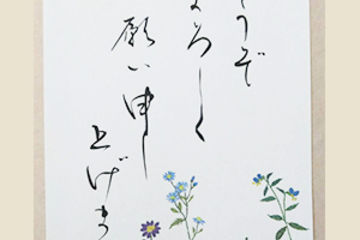 うぞ
ろしく
願い申し
上げま